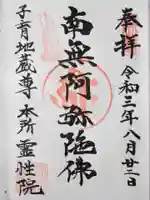 奉拝
令和三年八月廿二日
南無阿弥陀佛
子育地蔵尊 本所 霊性院